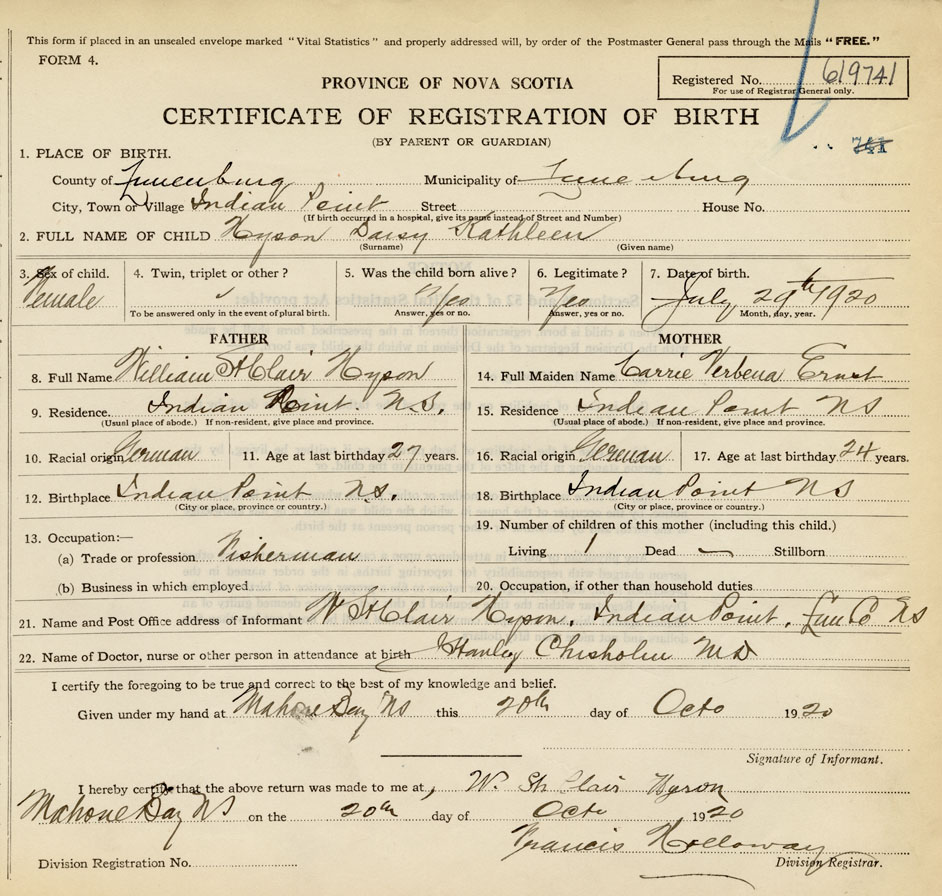 This form if placed in an unsealed envelope marked "Vital Statistics" and properly addressed will, by order of the Postmaster General pass through the Mails "FREE."
FORM 4.
Registered No. 619741
For use of Registrar General only.
PROVINCE OF NOVA SCOTIA
CERTIFICATE OF REGISTRATION OF BIRTH
(BY PARENT OR GUARDIAN)
1. PLACE OF BIRTH.
County of Lunenburg Municipality of Lunenburg
City, Town or Village Indian Point Street House No.
(If birth occurred in a hospital, give its name instead of Street and Number)
2. FULL NAME OF CHILD Hyson Daisy Kathleen
(Surname) (Given name)
3. Sex of child. 4. Twin, triplet or other? 5. Was the child born alive? 6. Legitimate? 7. Date of birth.
Female Yes Yes July 29th 1920
To be answered only in the event of plural birth. Answer, yes or no. Answer, yes or no. Month, day, year.
FATHER MOTHER
8. Full Name William St Clair Hyson 14. Full Maiden Name Carrie Verbena Ernst
9. Residence. Indian Point. N.S. 15. Residence Indian Point NS
(Usual place of abode.) If non-resident, give place and province. (Usual place of abode.) If non-resident, give place and province.
10. Racial origin German 11. Age at last birthday 27 years. 16. Racial origin German 17. Age at last birthday 24 years.
12. Birthplace Indian Point N.S. 18. Birthplace Indian Point NS
(City or place, province or country.) (City or place, province or country.)
13. Occupation:— 19. Number of children of this mother (including this child.)
(a) Trade or profession Fisherman Living 1 Dead — Stillborn
(b) Business in which employed 20. Occupation, if other than household duties
21. Name and Post Office address of Informant W St Clair Hyson, Indian Point, Lun Co NS
22. Name of Doctor, nurse or other person in attendance at birth Stanley Chisholm MD
I certify the foregoing to be true and correct to the best of my knowledge and belief.
Given under my hand at Mahone Bay NS this 20th day of Octo 1920
Signature of Informant.
I hereby certify that the above return was made to me at, W. St. Clair Hyson
Mahone Bay NS on the 20th day of Octo 1920
Francis Holloway
Division Registration No. Division Registrar.